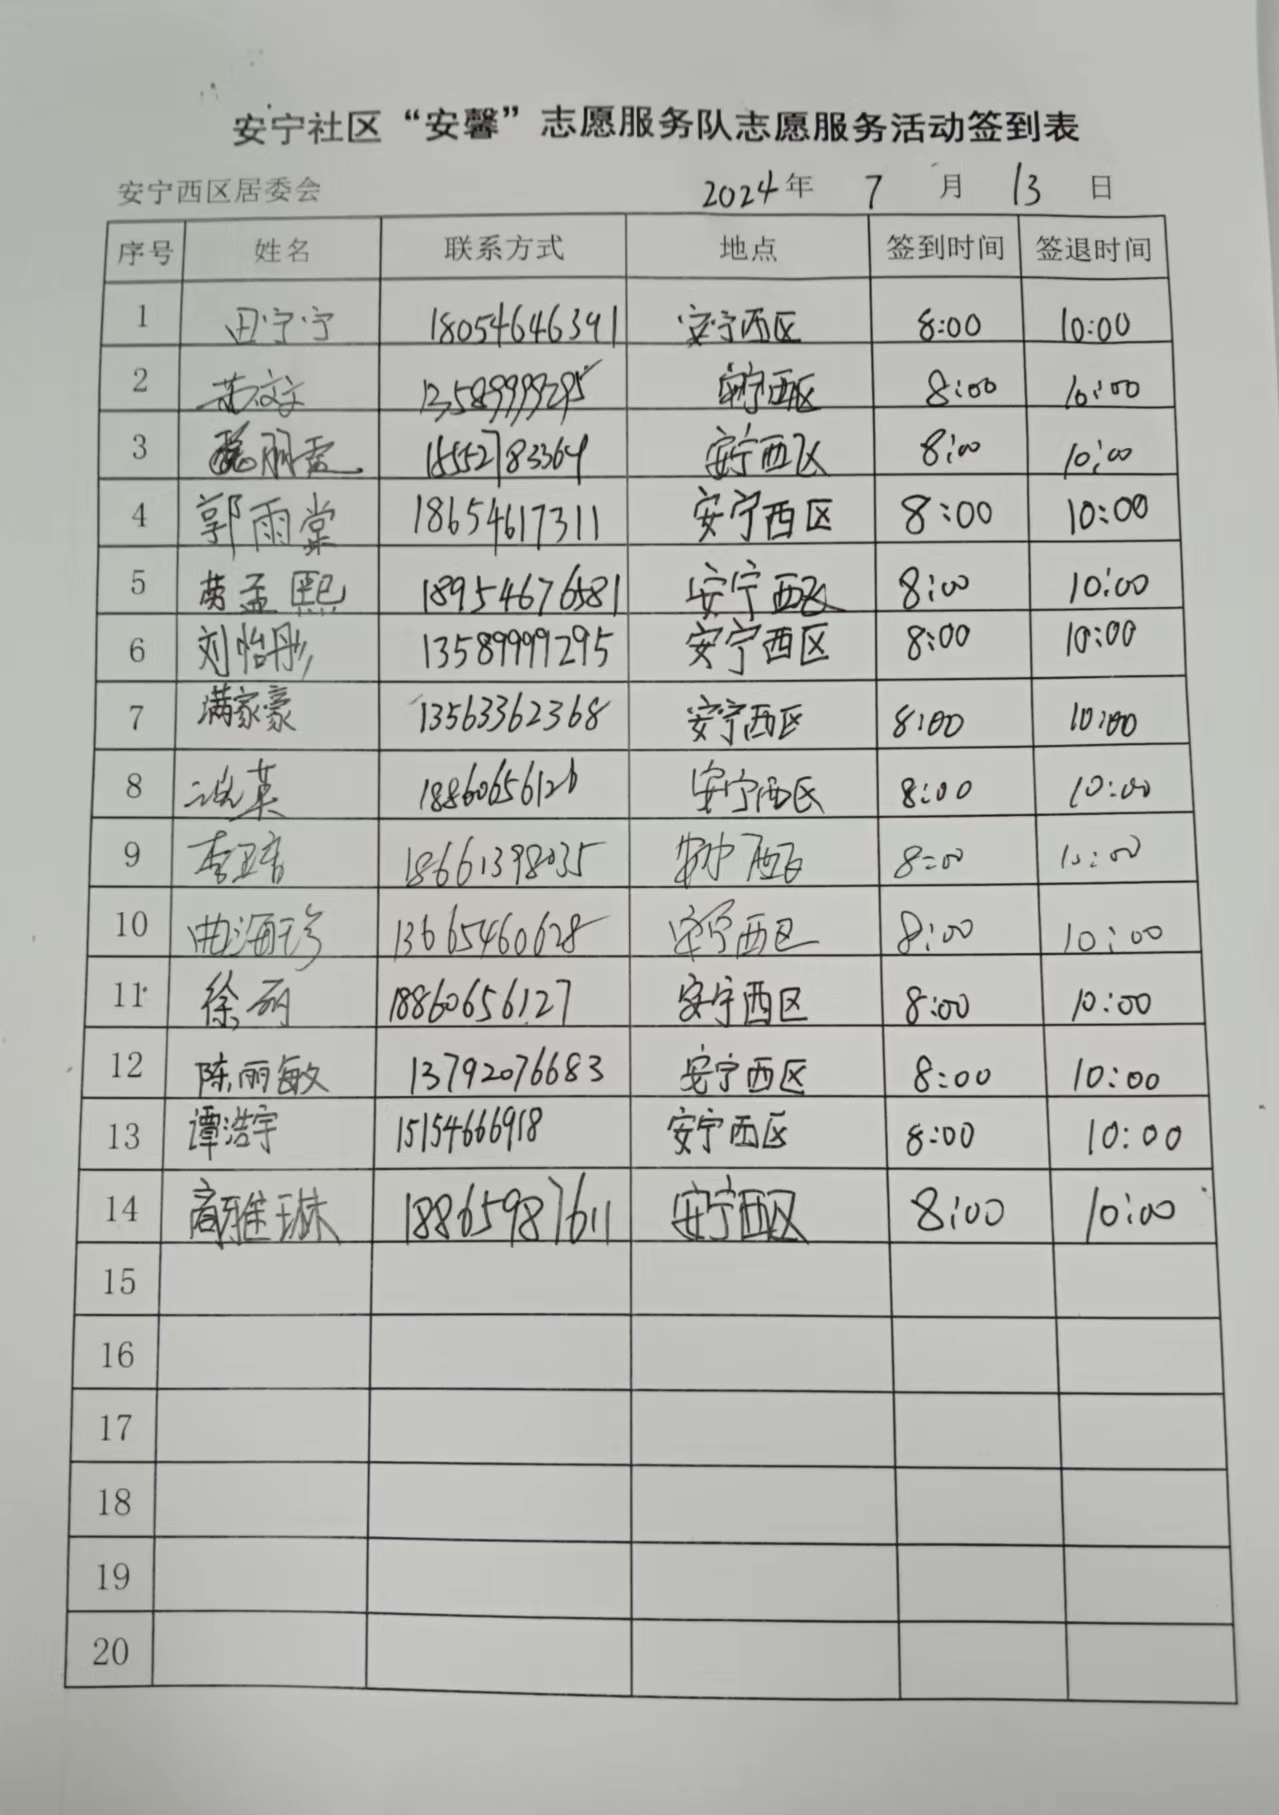 安宁社区“安馨”志愿服务队志愿服务活动签到表
安宁西区居委会 2024年 7 月 13 日
序号 姓名 联系方式 地点 签到时间 签退时间
1 田宁宁 18054646391 安宁西区 8:00 10:00
2 13589999295 安宁西区 8:00 10:00
3 18552783364 安宁西区 8:00 10:00
4 郭雨棠 18654617311 安宁西区 8:00 10:00
5 孟熙 18954676581 安宁西区 8:00 10:00
6 刘怡彤 13589999295 安宁西区 8:00 10:00
7 满家豪 13563362368 安宁西区 8:00 10:00
8 英 18860656126 安宁西区 8:00 10:00
9 李 18661398035 安宁西区 8:00 10:00
10 曲海珍 13665460628 安宁西区 8:00 10:00
11 徐丽 18860656127 安宁西区 8:00 10:00
12 陈丽敏 13792076683 安宁西区 8:00 10:00
13 谭浩宇 15154666918 安宁西区 8:00 10:00
14 高雅琳 18865987611 安宁西区 8:00 10:00
15
16
17
18
19
20